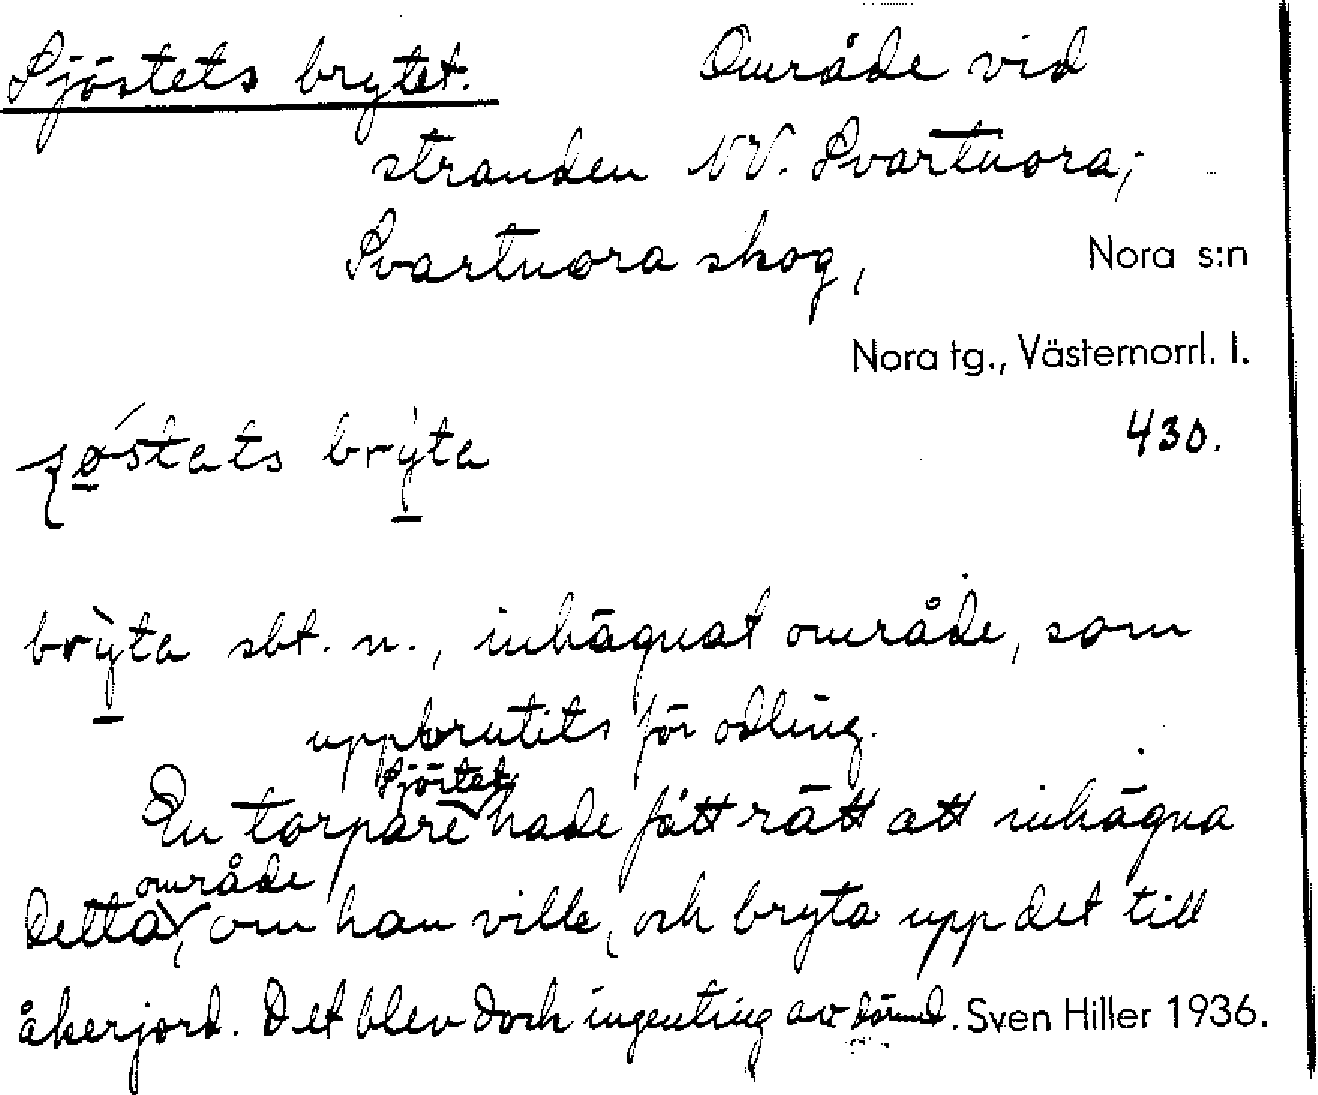 Sjöstets brytet. Område vid
stranden NV. Svartnora,
Svartnora skog, Nora s:n
Nora tg., Västernorrl. l.
430.
ʂǿstats brỳta
brỳta sbt. n., inhägnat område, som
uppbrutits för odling.
En torpare Sjöstet hade fått rätt att inhägna
detta område, om han ville, och bryta upp det till
åkerjord. Det blev dock ingenting av därmed. Sven Hiller 1936.